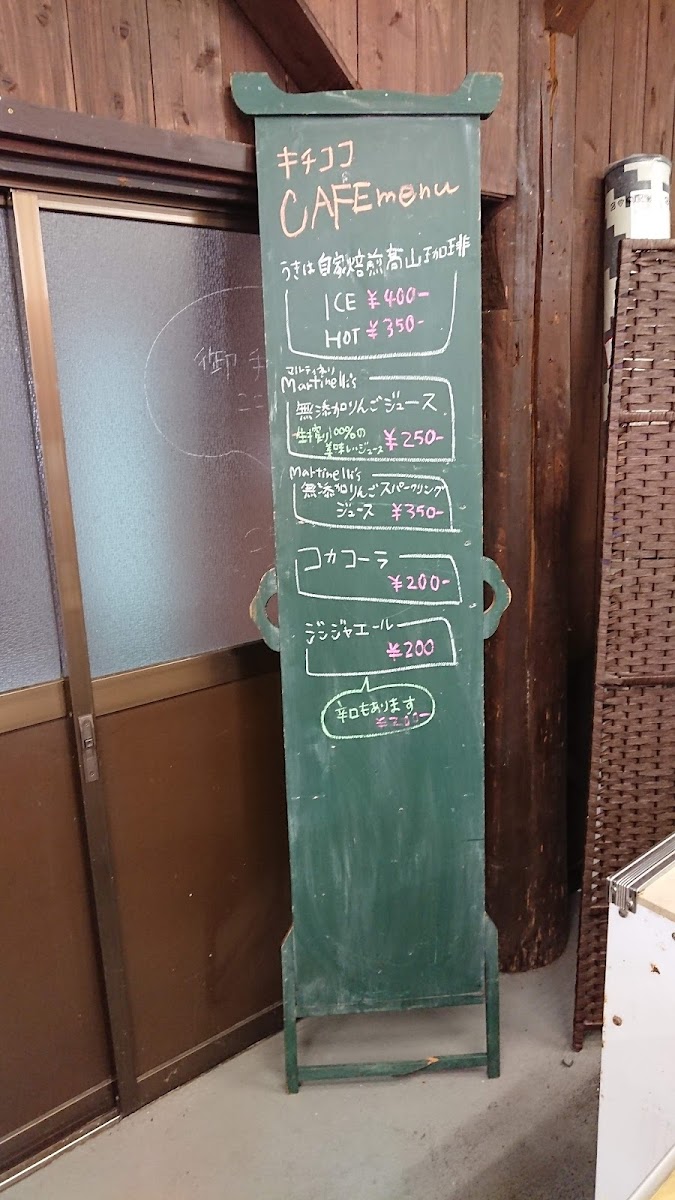 キチココ
CAFE menu
うきは自家焙煎高山珈琲
ICE ¥400-
HOT ¥350-
マルティネリ
Martinelli's
無添加りんごジュース
生搾り100%の
美味しいジュース ¥250-
Martinelli's
無添加りんごスパークリング
ジュース ¥350-
コカコーラ
¥200-
ジンジャエール
¥200
辛口もあります
¥200-
御手
ココ